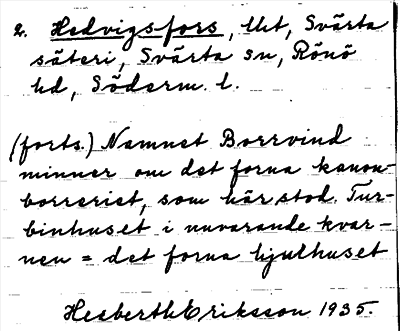 2. Hedvigsfors, Ukt, Svärta
säteri, Svärta sn, Rönö
hd, Söderm. l.
(forts.) Namnet Borrvind
minner om det forna kanon-
borreriet, som här stod. Tur-
binhuset i nuvarande kvar-
nen = det forna hjulhuset
Herberth Eriksson 1935.